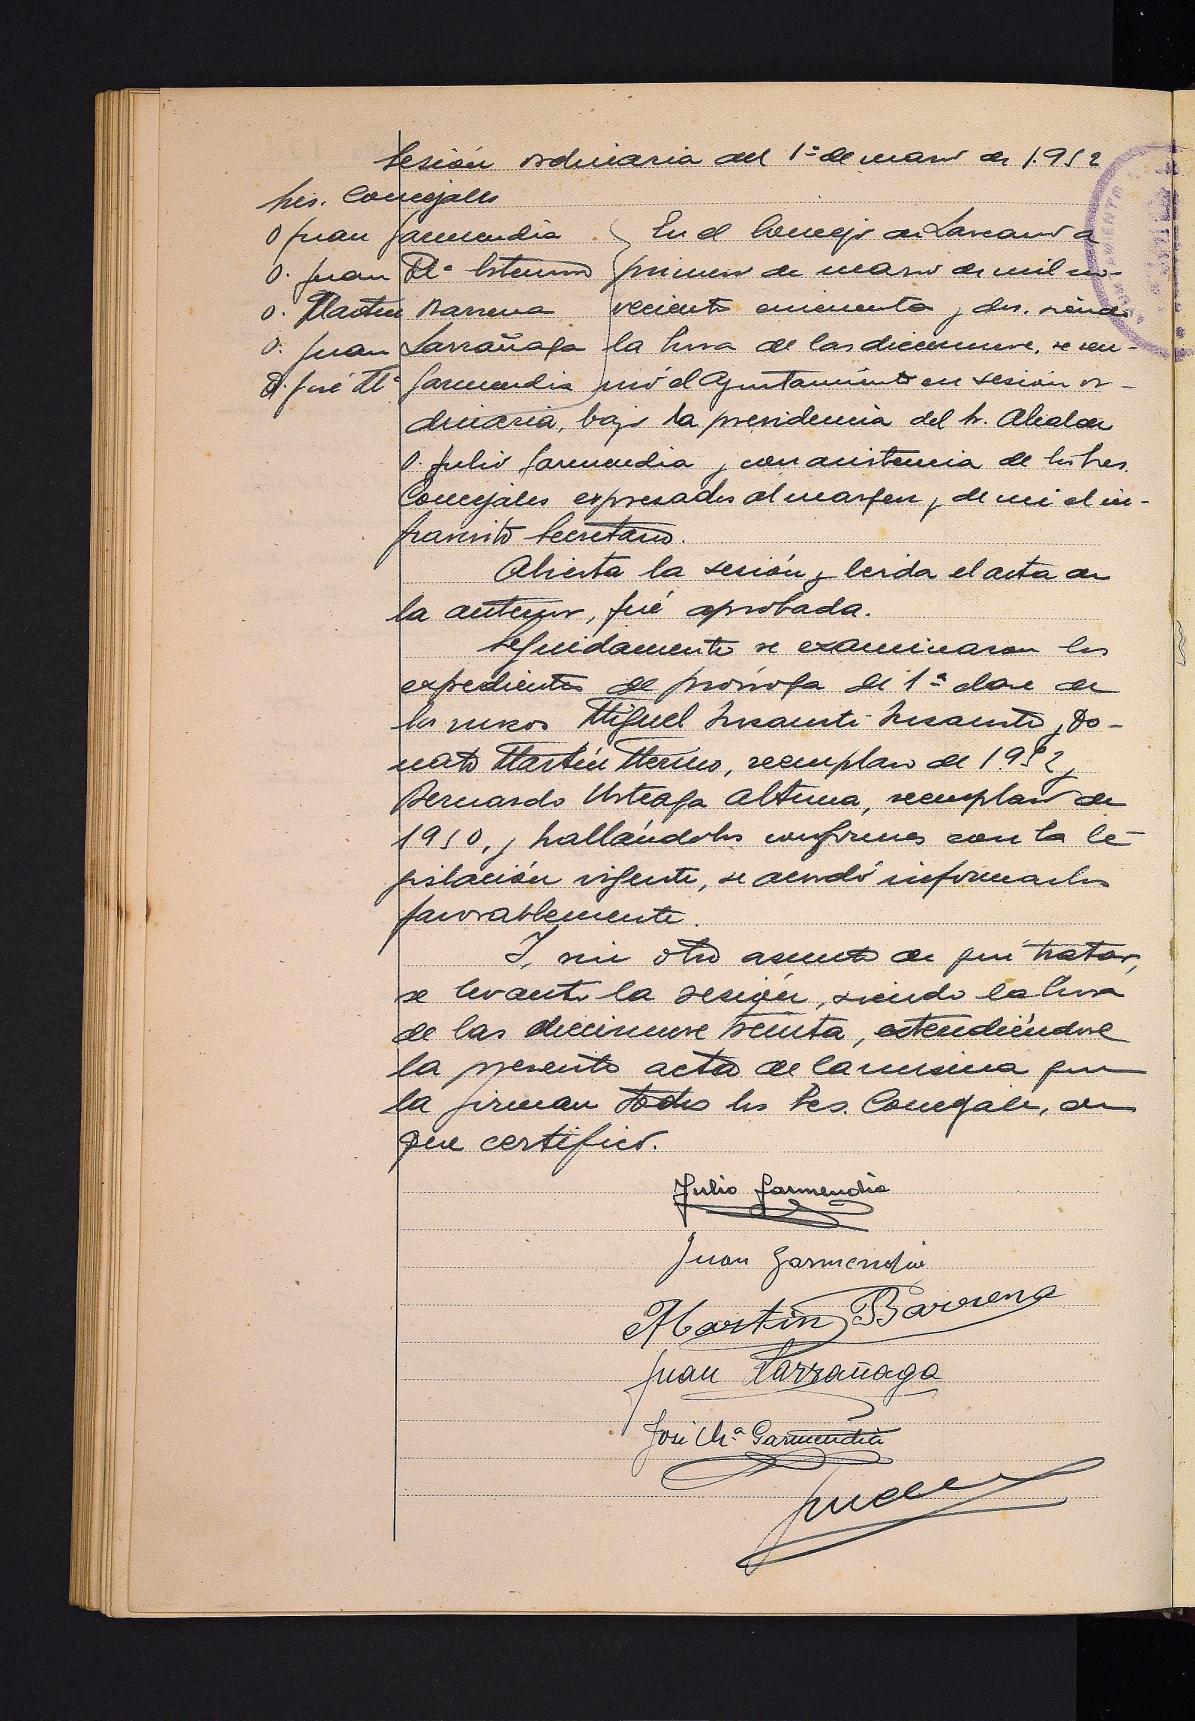 Sesión ordinaria del 1º de marzo de 1.952
Sres. Concejales
D. Juan Garmendia
D. Juan Mª
D. Martin Barrena
D. Juan Larrañaga
D. José Mª Garmendia
En el Concejo de Lazcano a
primero de marzo de mil no-
veciento cincuenta y dos, siendo
la hora de las diecinueve, se reu-
nió el Ayuntamiento en sesión or-
dinaria, bajo la presidencia del Sr. Alcalde
D. Julio Garmendia y con asistencia de los Sres.
Concejales expresados al margen y de mi el in-
frascrito Secretario.
Abierta la sesión y leida el acta de
la anterior, fué aprobada.
Seguidamente se examinaron los
expedientes de prórroga de 1ª clase de
los mozos Miguel Insausti Insausti, Do-
nato Martín Merino, reemplazo de 1.952 y
Bernardo Urteaga Altuna, reemplazo de
1950, y hallándolos conformes con la le-
gislación vigente, se acordó informarlos
favorablemente.
Y, sin otro asunto de que tratar,
se levantó la sesión, siendo la hora
de las diecinueve treinta, extendiéndose
la presente acta de la misma que
la firman todos los Sres. Concejales, de
que certifico.
Julio Garmendia
Juan Garmendia
Martín Barrena
Juan Larrañaga
José Mª Garmendia